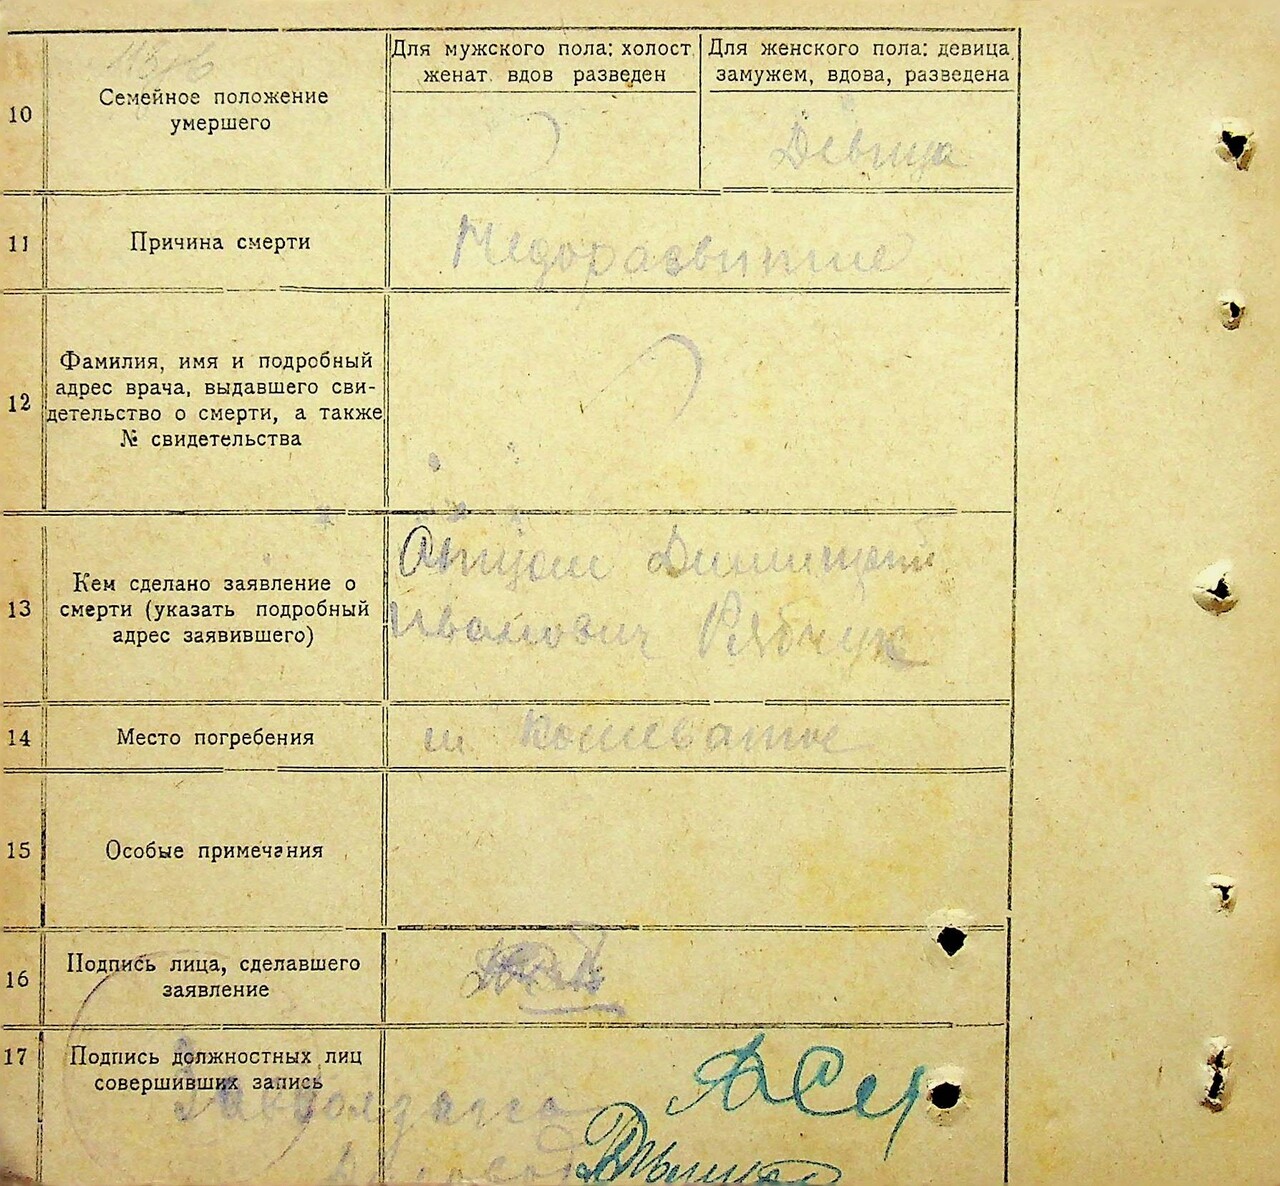 Для мужского пола: холост
женат вдов разведен
Для женского пола: девица
замужем, вдова, разведена
10
Семейное положение
умершего
Девица
11
Причина смерти
Недоразвитие
12
Фамилия, имя и подробный
адрес врача, выдавшего сви-
детельство о смерти, а также
№ свидетельства
13
Кем сделано заявление о
смерти (указать подробный
адрес заявившего)
Отцом
Иванович Рябчук
14
Место погребения
м Кошеватое
15
Особые примечания
16
Подпись лица, сделавшего
заявление
17
Подпись должностных лиц
совершивших запись